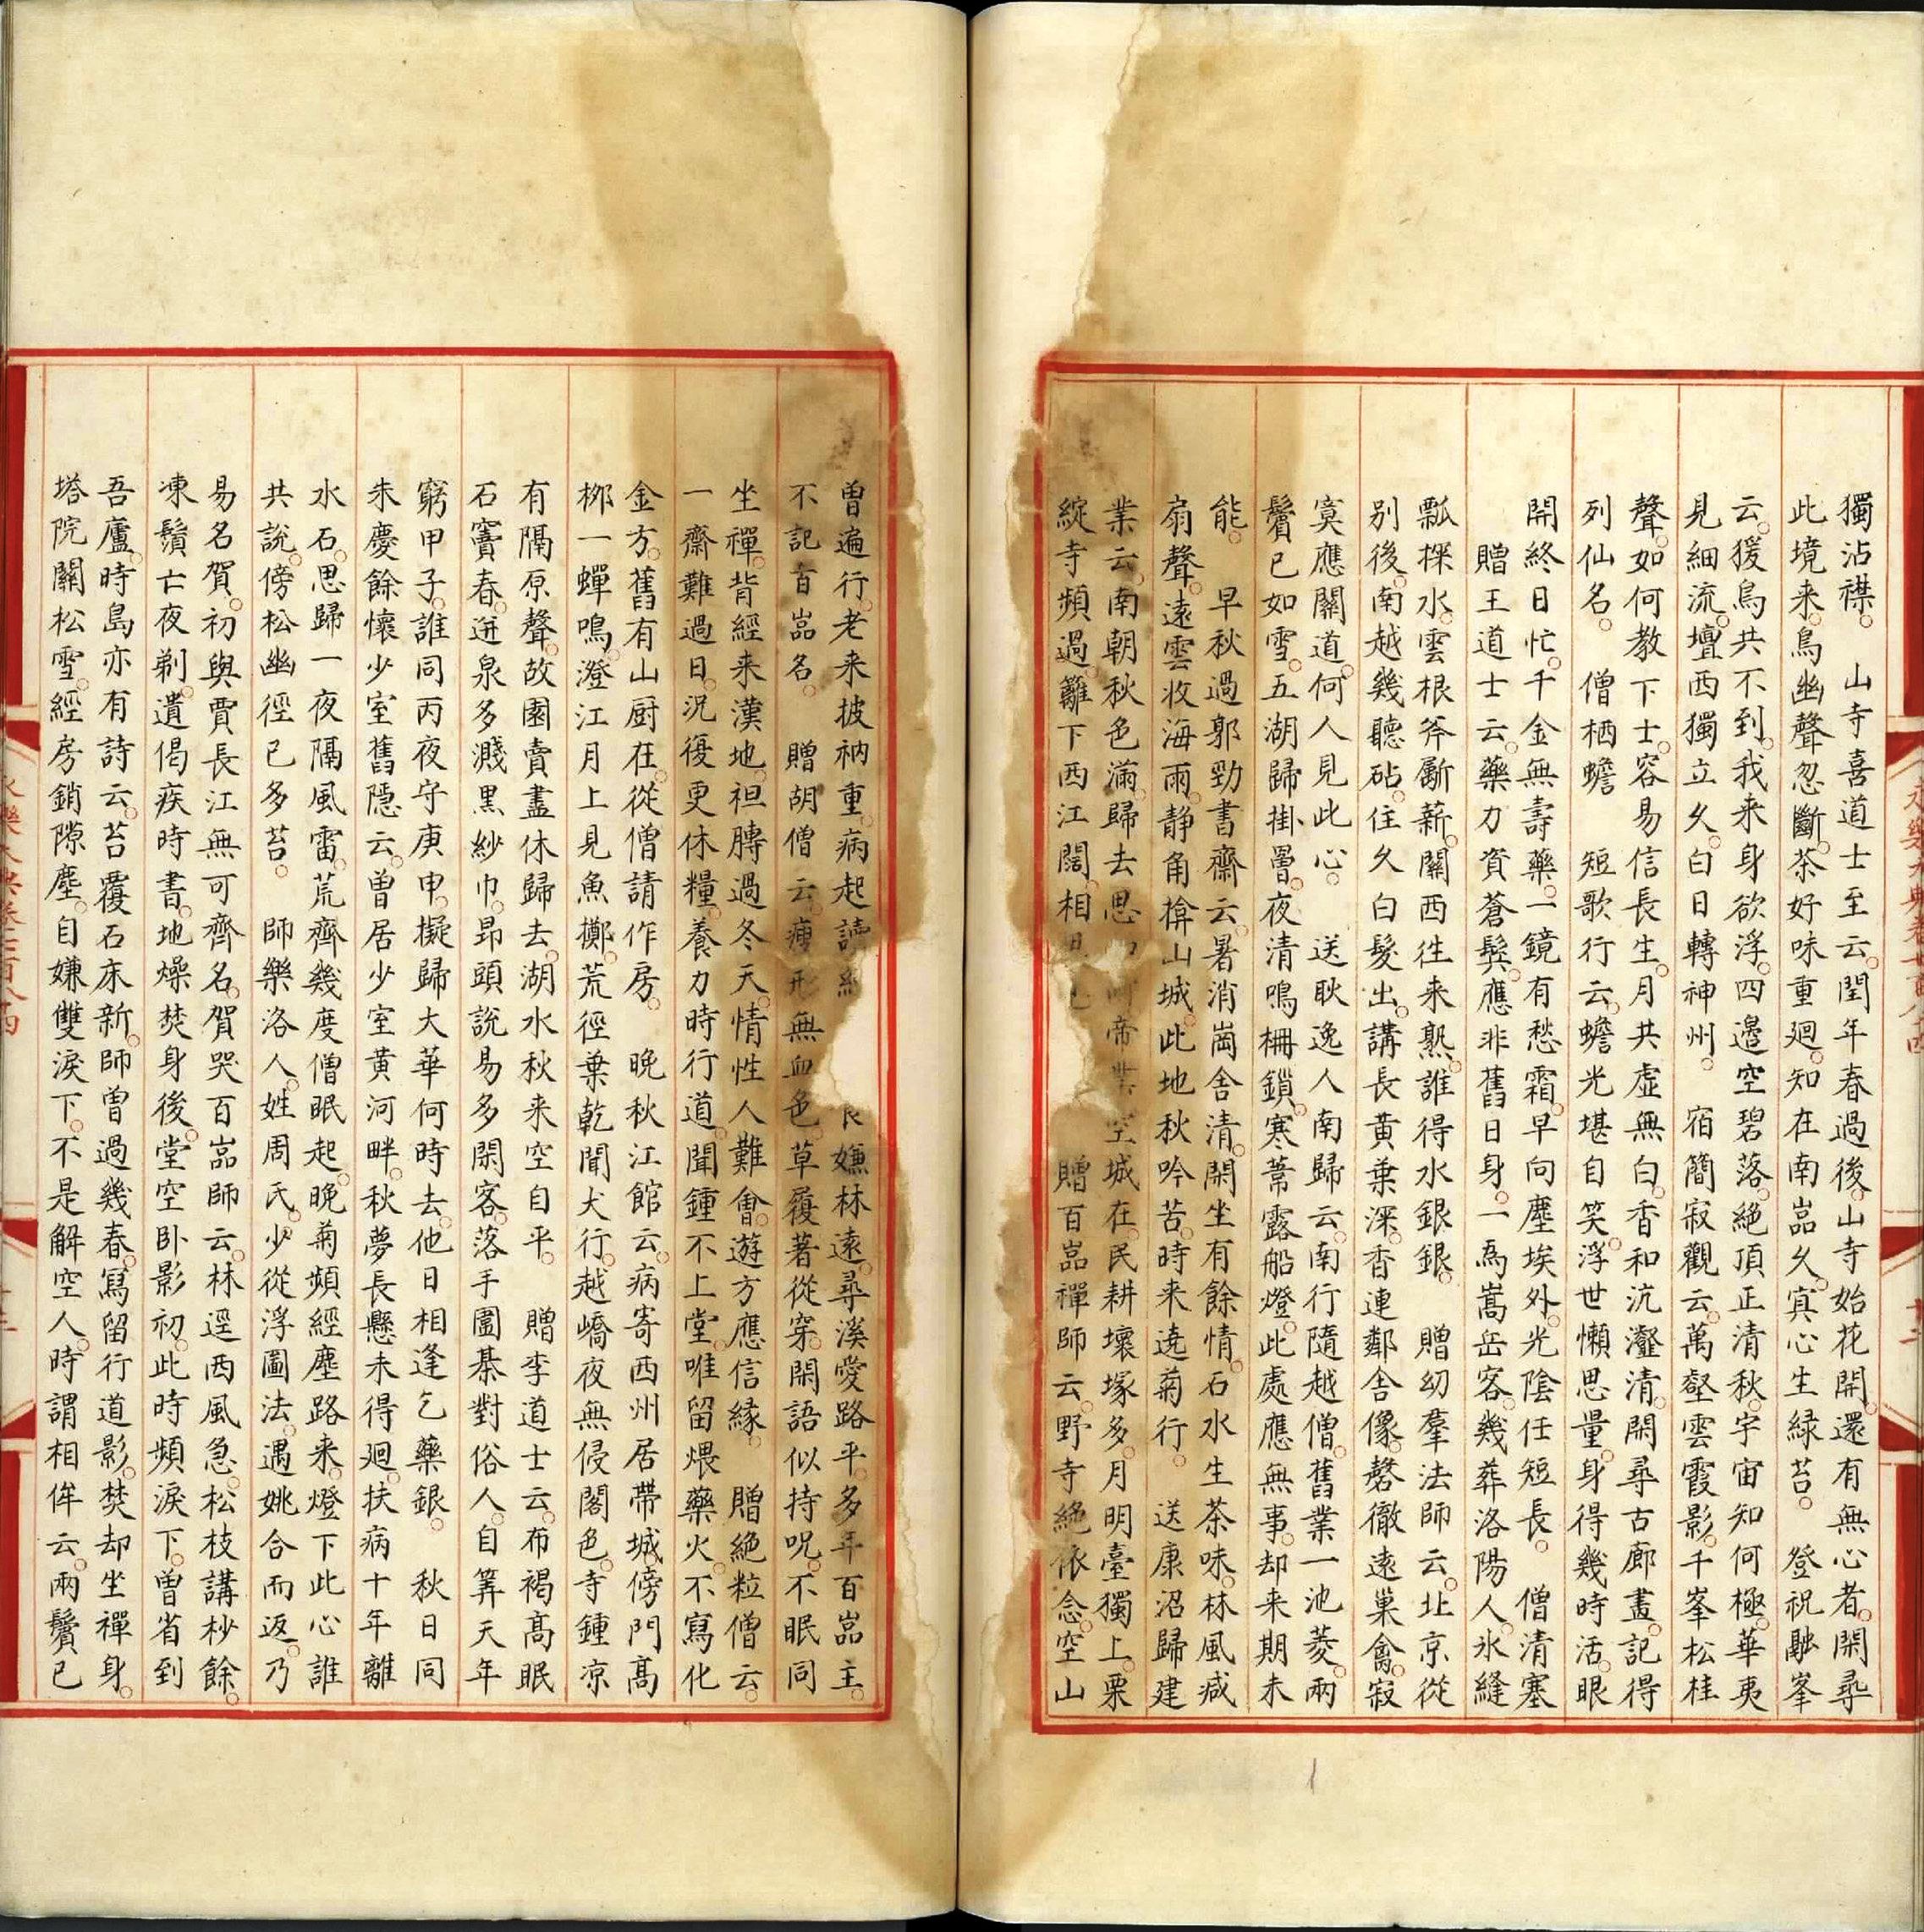 獨沾襟。 山寺喜道士至云。閏年春過後。山寺始花開。還有無心者。閑尋
此境来。鳥幽聲忽斷。茶好味重迴。知在南嵓久。㝠心生緑苔。 登祝融峯
云。猨鳥共不到。我来身欲浮。四邉空碧落。絶頂正清秋。宇宙知何極。華夷
見細流。壇西獨立久。白日轉神州。 宿簡寂觀云。萬壑雲霞影。千峯松桂
聲。如何教下士。容易信長生。月共虚無白。香和沆瀣清。閑尋古廊畫。記得
列仙名。 僧栖蟾 短歌行云。蟾光堪自笑。浮世懶思量。身得幾時活。眼
開終日忙。千金無壽藥。一鏡有愁霜。早向塵埃外。光陰任短長。 僧清塞
贈王道士云。藥力資蒼髮。應非舊日身。一爲嵩岳客。幾葬洛陽人。氷縫
瓢探水。雲根斧斸薪。關西徃来熟。誰得水銀銀。 贈幻羣法師云。北京從
别後。南越幾聽砧。住久白髮出。講長黄葉深。香連鄰舎像。磬徹遠巢禽。寂
寞應關道。何人見此心。 送耿逸人南歸云。南行隨越僧。舊業一池菱。兩
鬢已如雪。五湖歸掛罾。夜清鳴栅鎖。寒葦露船燈。此處應無事。却来期未
能。 早秋過郭勁書齋云。暑消崗舎清。閑坐有餘情。石水生茶味。林風减
扇聲。遠雲收海雨。静角揜山城。此地秋吟苦。時来遶菊行。 送康沼歸建
業云。南朝秋色滿。歸去思 帝業空城在。民耕壞塚多。月明臺獨上。栗
綻寺頻過。籬下西江闊。相 贈百嵓禪師云。野寺絶依念。空山
曽遍行。老来披衲重。病起讀 嫌林遠。尋溪愛路平。多年百嵓主。
不記百嵓名。 贈胡僧云。瘦形無血色。草履著從穿。閑語似持呪。不眠同
坐禪。背經来漢地。袒膊過冬天。情性人難會。遊方應信緣。 贈絶粒僧云。
一齋難過日。況復更休糧。養力時行道。聞鍾不上堂。唯留煨藥火。不寫化
金方。舊有山厨在。從僧請作房。 晚秋江館云。病寄西州居帶城。傍門髙
桞一蟬鳴。澄江月上見魚擲。荒徑葉乾聞犬行。越嶠夜無侵閣色。寺鍾凉
有隔原聲。故園賣盡休歸去。湖水秋来空自平。 贈李道士云。布褐髙眠
石竇春。迸泉多濺黒紗巾。昂頭說易多閑客。落手圍棊對俗人。自筭天年
窮甲子。誰同丙夜守庚申。擬歸大華何時去。他日相逢乞藥銀。 秋日同
朱慶餘懷少室舊隱云。曽居少室黄河畔。秋夢長懸未得廻。扶病十年離
水石。思歸一夜隔風雷。荒齊幾度僧眠起。晚菊頻經塵路来。燈下此心誰
共說。傍松幽徑已多苔。 師樂洛人。姓周氏。少從浮圖法。遇姚合而返。乃
易名賀。初與賈長江無可齊名。賀哭百嵓師云。林逕西風急。松枝講杪餘。
凍鬚亡夜剃。遺偈疾時書。地燥焚身後。堂空卧影初。此時頻淚下。曽省到
吾廬。時島亦有詩云。苔覆石床新。師曽過幾春。寫留行道影。焚却坐禪身。
塔院關松雪。經房銷隙塵。自嫌雙淚下。不是解空人。時謂相侔云。兩鬢已